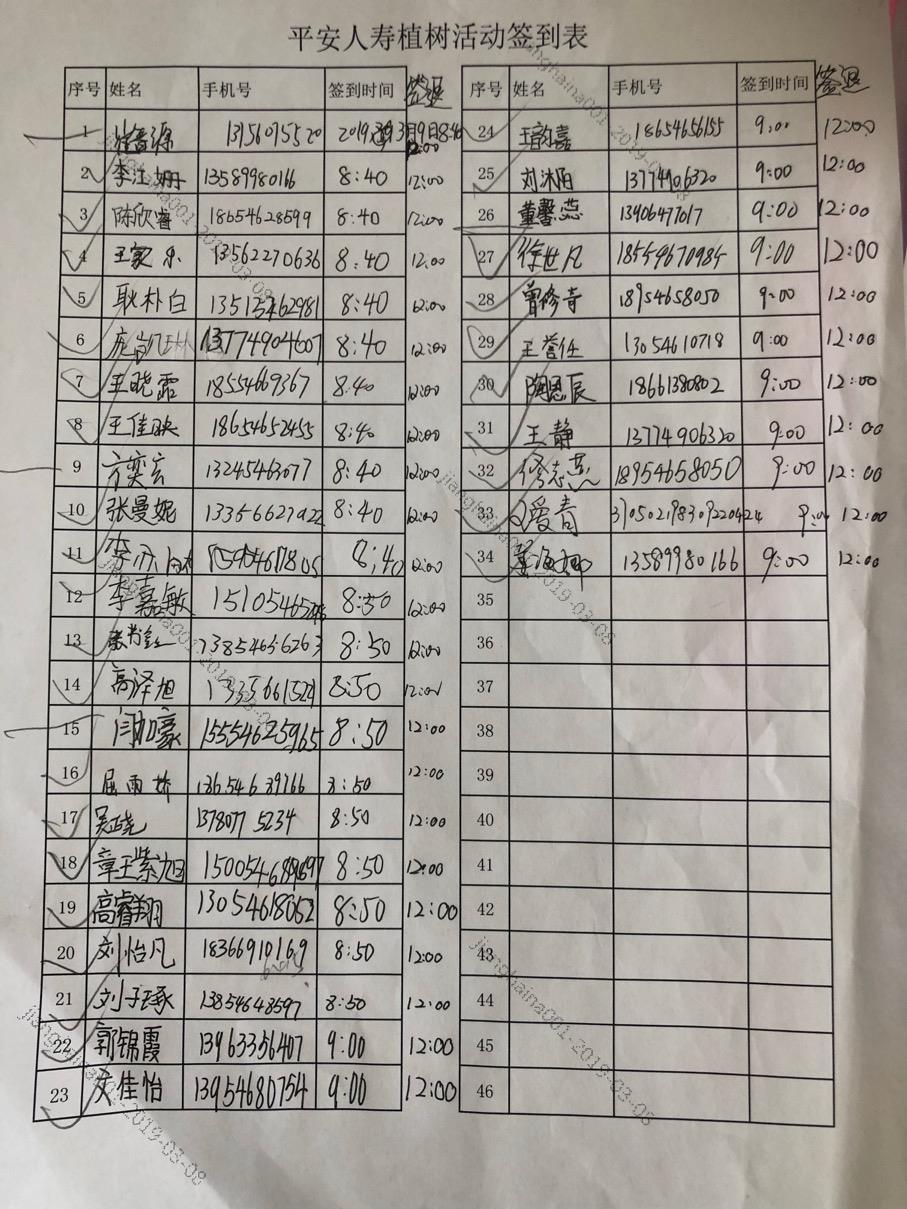 平安人寿植树活动签到表
序号 姓名 手机号 签到时间 签退
1 源 2019 3月9日8:40 12:00
2 李江姗 13589980166 8:40 12:00
3 陈欣睿 18654628599 8:40 12:00
4 王家乐 13562270636 8:40 12:00
5 耿朴白 13515462981 8:40 12:00
6 13774904607 8:40 12:00
7 王晓霏 18554669367 8:40 12:00
8 王佳映 18654652455 8:40 12:00
9 方奕玄 13245463077 8:40 12:00
10 张曼妮 13356627922 8:40 12:00
11 李 8:40 12:00
12 李嘉敏 8:50 12:00
13 13854656263 8:50 12:00
14 高泽旭 8:50 12:00
15 闫加豪 15554625965 8:50 12:00
16 屈雨娇 13654639766 8:50 12:00
17 吴晓 1378077 5234 8:50 12:00
18 章王紫旭 8:50 12:00
19 高睿翔 13054618052 8:50 12:00
20 刘怡凡 18366910169 8:50 12:00
21 刘子琢 13854648597 8:50 12:00
22 郭锦霞 13963356407 9:00 12:00
23 佳怡 13954680754 9:00 12:00
序号 姓名 手机号 签到时间 签退
24 王韵嘉 18654656155 9:00 12:00
25 刘沐阳 13774906320 9:00 12:00
26 董馨蕊 13406477017 9:00 12:00
27 徐世凡 18559670984 9:00 12:00
28 曾修奇 18954658050 9:00 12:00
29 王誉任 13054610718 9:00 12:00
30 陶恩辰 18661380802 9:00 12:00
31 王静 13774906320 9:00 12:00
32 修志燕 18954658050 9:00 12:00
33 爱青 370502198309220424 9:00 12:00
34 13589980166 9:00 12:00
35
36
37
38
39
40
41
42
43
44
45
46
jianghaina001-2019-03-08
jianghaina001-2019-03-08
jianghaina001-2019-03-08
jianghaina001-2019-03-08
jianghaina001-2019-03-08
jianghaina001-2019-03-08
jianghaina001-2019-03-08